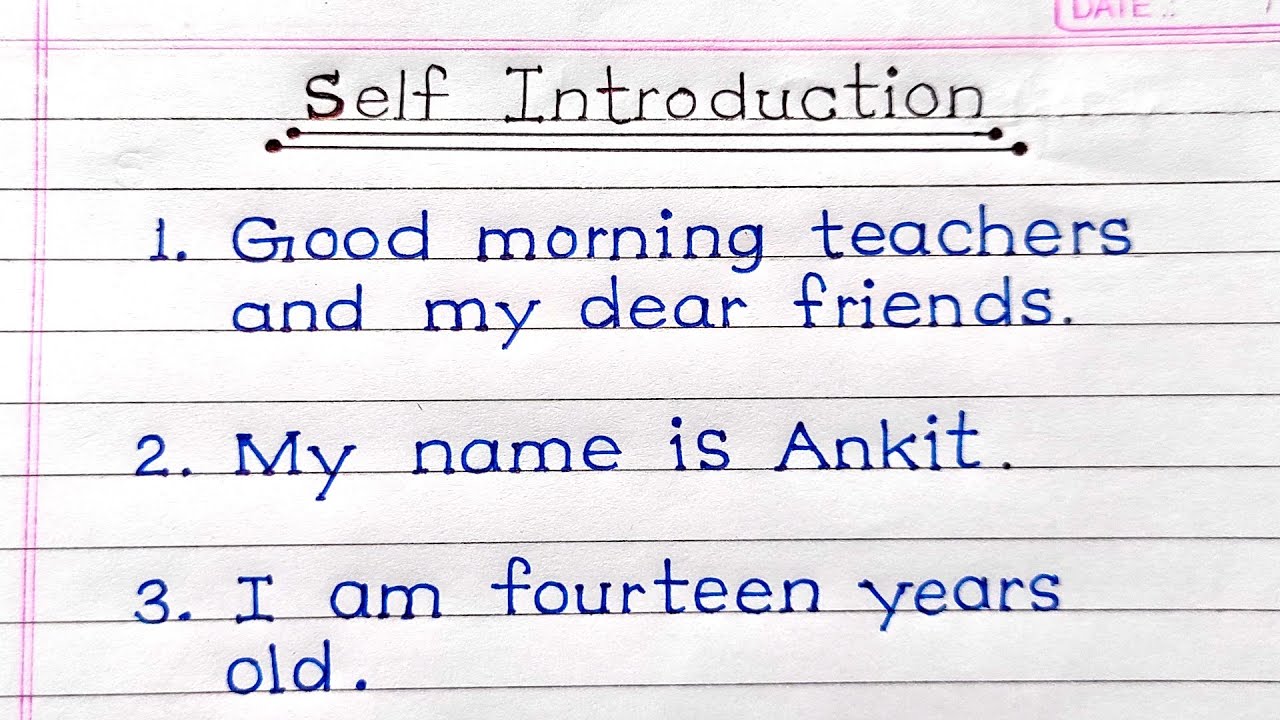 DATE :
Self Introduction
1. Good morning teachers
and my dear friends.
2. My name is Ankit.
3. I am fourteen years
old.